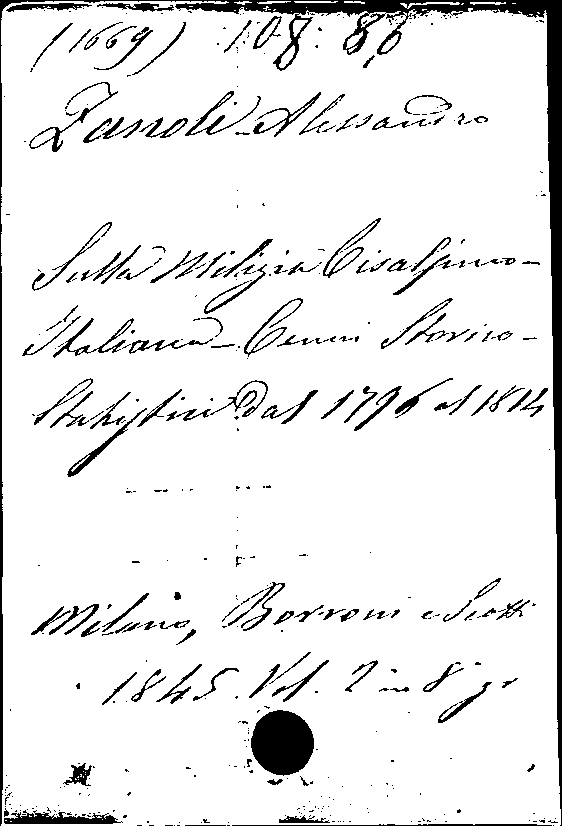 (1669) 108: 86
Zanoli Alessandro
Sulla Milizia Cisalpino-
Italiana - Cenni Storico-
Statistici dal 1796 al 1814
Milano, Borroni e Scotti
1845. Vol. 2 in 8° gr